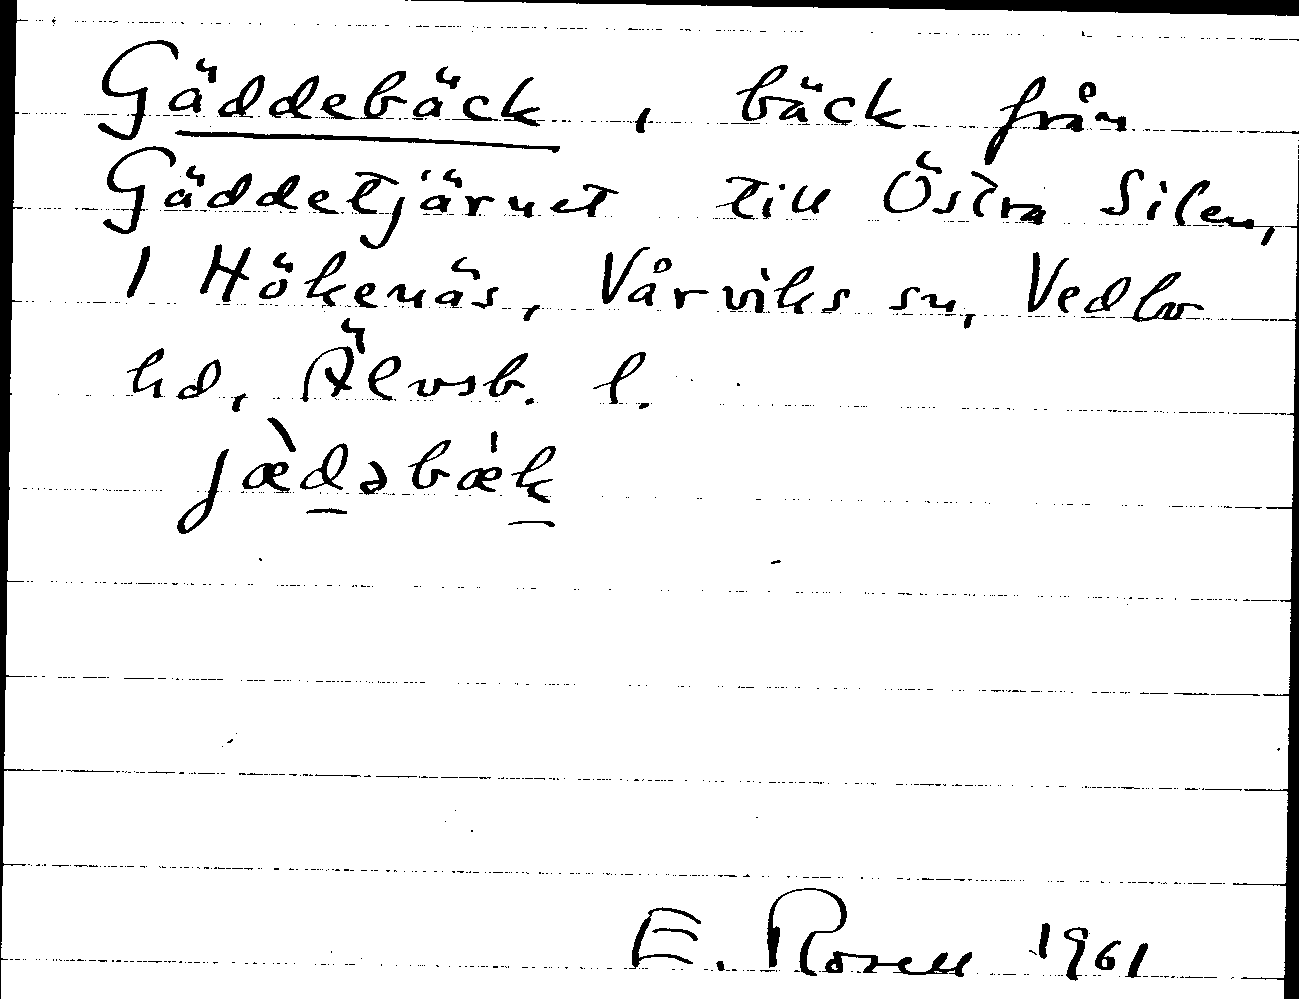 Gäddebäck, bäck från
Gäddetjärnet till Östra Silen,
1 Hökenäs, Vårviks sn, Vedbo
hd, Älvsb. l.
jæ̀d̲əbæ̍k̲
E. Rosell 1961